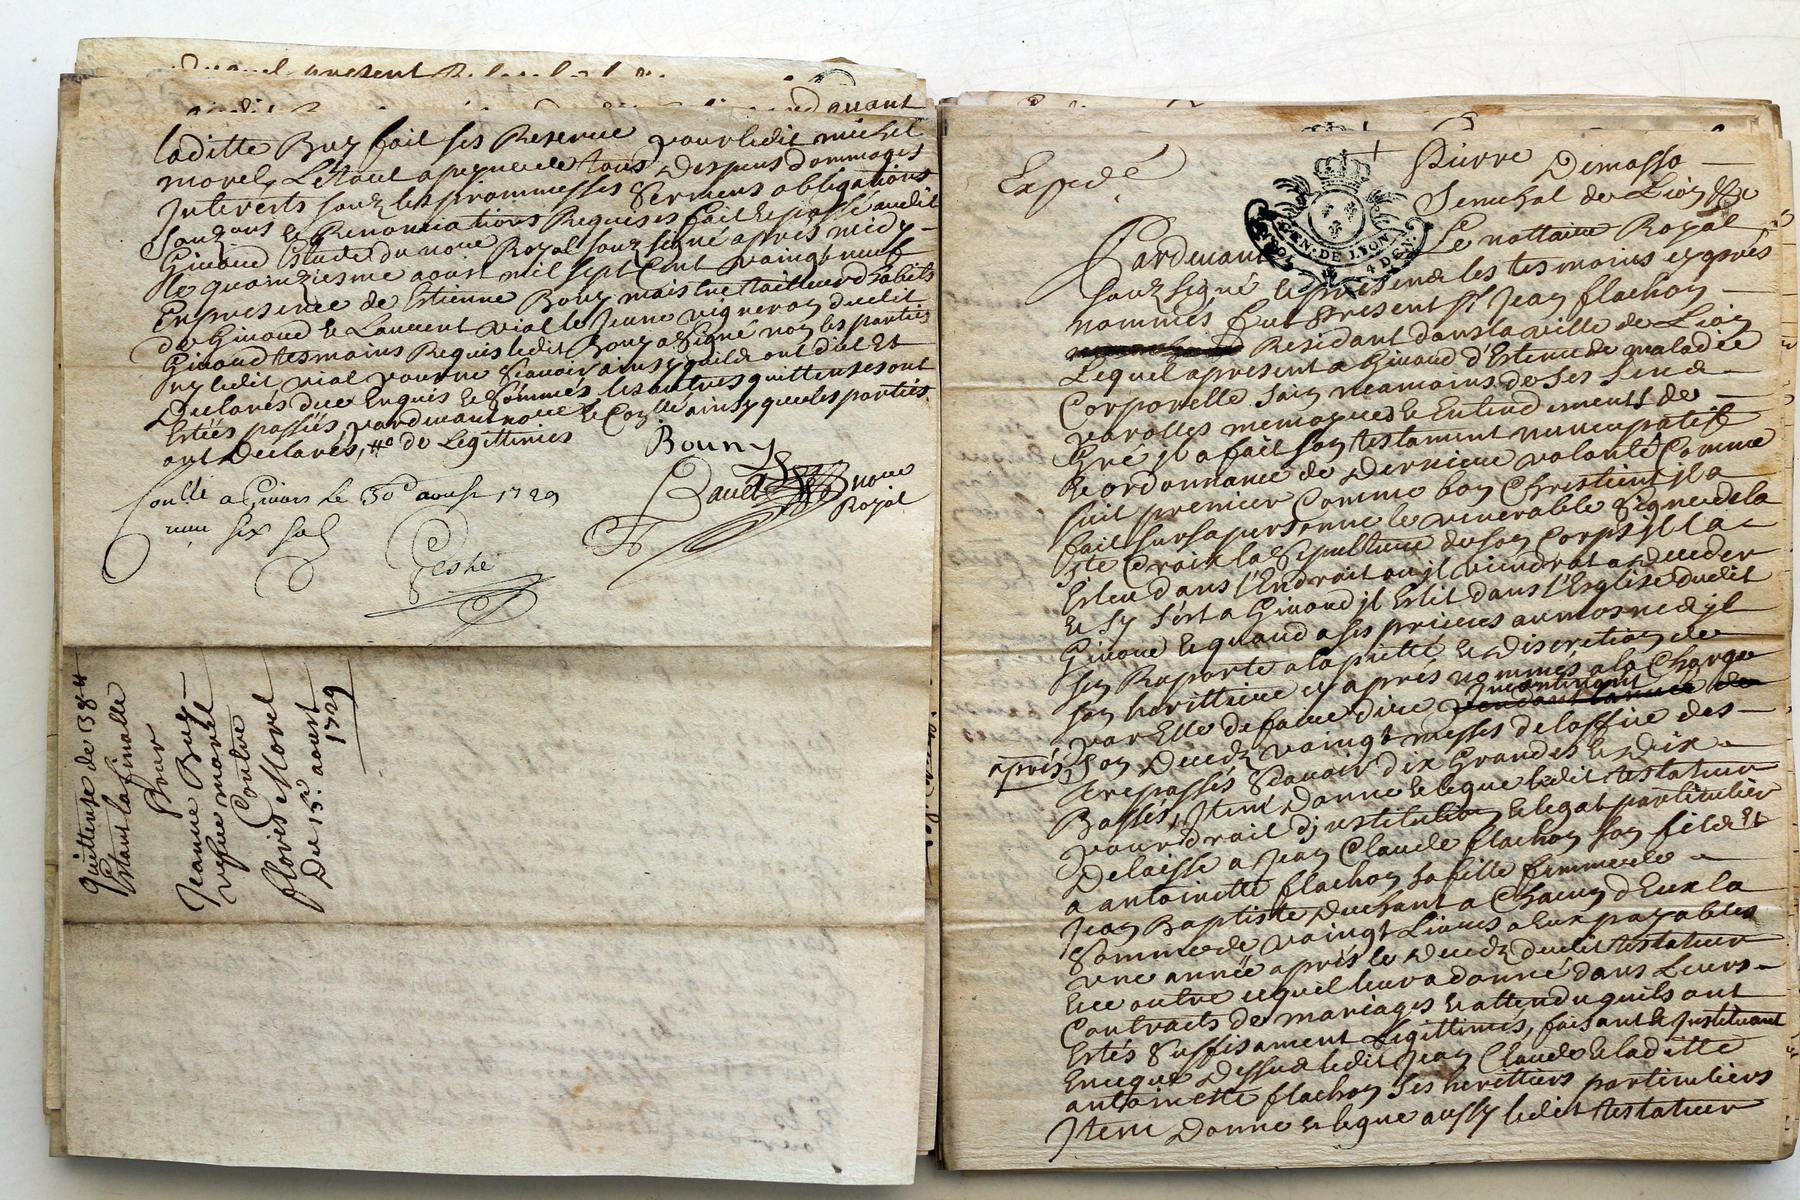 laditte Buy fait ses Reserve pour ledit michel
morel, L'Etout a peyne de tous Despens dommages
Interests souz les promesses Sermens obligations
souz ons et Renonciations Requises fait et passé audit
Givord Estude du noue Royal souz signé apres midy
le quainziesme aoust mil sept Cent vaingt neuf
En presence de Estienne Bouny maistre tailleur d'habits
de Givord et Laurent vial le Jeune vigneron dudit
Givord tesmoins Requis ledit Bouny a signé non les parties
ny ledit vial pour ne Scavoir ainsy quils ont dict Et
Declarés de ce Enquis et Sommés les autres quittenses ont
Estées passées pardevant noue et Conllé ainsy que les parties
ont Declarés, de Legittimes
Bouny
Bault noue
Royal
Conllé a Givors Le 30e aoust 1729
six sols
Quittense de 38
Estant la finalle
Pour
Jeanne Buy
vefue morel
Contre
floris Morel
Du 15e aoust
1729
Expedé
Pierre Dimasso
Senechal de Lion &c
GEN. DE LYON
4 D
Pardevant Le nottaire Royal
souz signé et presence les tesmoins cy apres
nommés fut present sr Jean flachon
Residant dans la ville de Lion
Lequel a present a Givord d'Estenu de maladie
Corporelle sain neamoins de ses sens
parolles memoyres et Entendements de
Gré jl a fait son testament nuncupatif
et ordonnance de Derniere volonté Comme
suit premier Comme bon Chrestient jl a
fait sur sa personne le venerable Signe de la
ste Croix la Sepulture de son Corps jl la
Esleu dans l'Endroit ou jl viendrat a Deceder
et sy s'est a Givord jl Eslit dans l'Esglise dudit
Givord et quand a ses prieres aumosnes jl
sen Raporte a la pietté et Discretion de
son herittiere cy aprés nommés a la Charge
par Elle de faire dire Incontinant
aprés son Decedz vaingt messes de l'office des
trepassés Scavoir dix Grandes et Dix
Basses, Item Donne et legue ledit testateur
pour droit d'jnstitution et legat particulier
Delaisse a Jean Claude flachon son fils Et
a antoinette flachon sa fille femme de
Jean Baptiste Duchant a Chacun d'Eux la
Somme de vaingt Livres a Eux payables
une année aprés le Decedz dudit testateur
Et ce outre ce quil leur a donné dans Leurs
Contracts de mariages et attendu quils ont
Estés Suffisament Legittimés, faisant et Instituant
En ce que Dessus ledit Jean Claude et laditte
antoinette flachon Ses herittiers particuliers
Item Donne et legue aussy ledit testateur